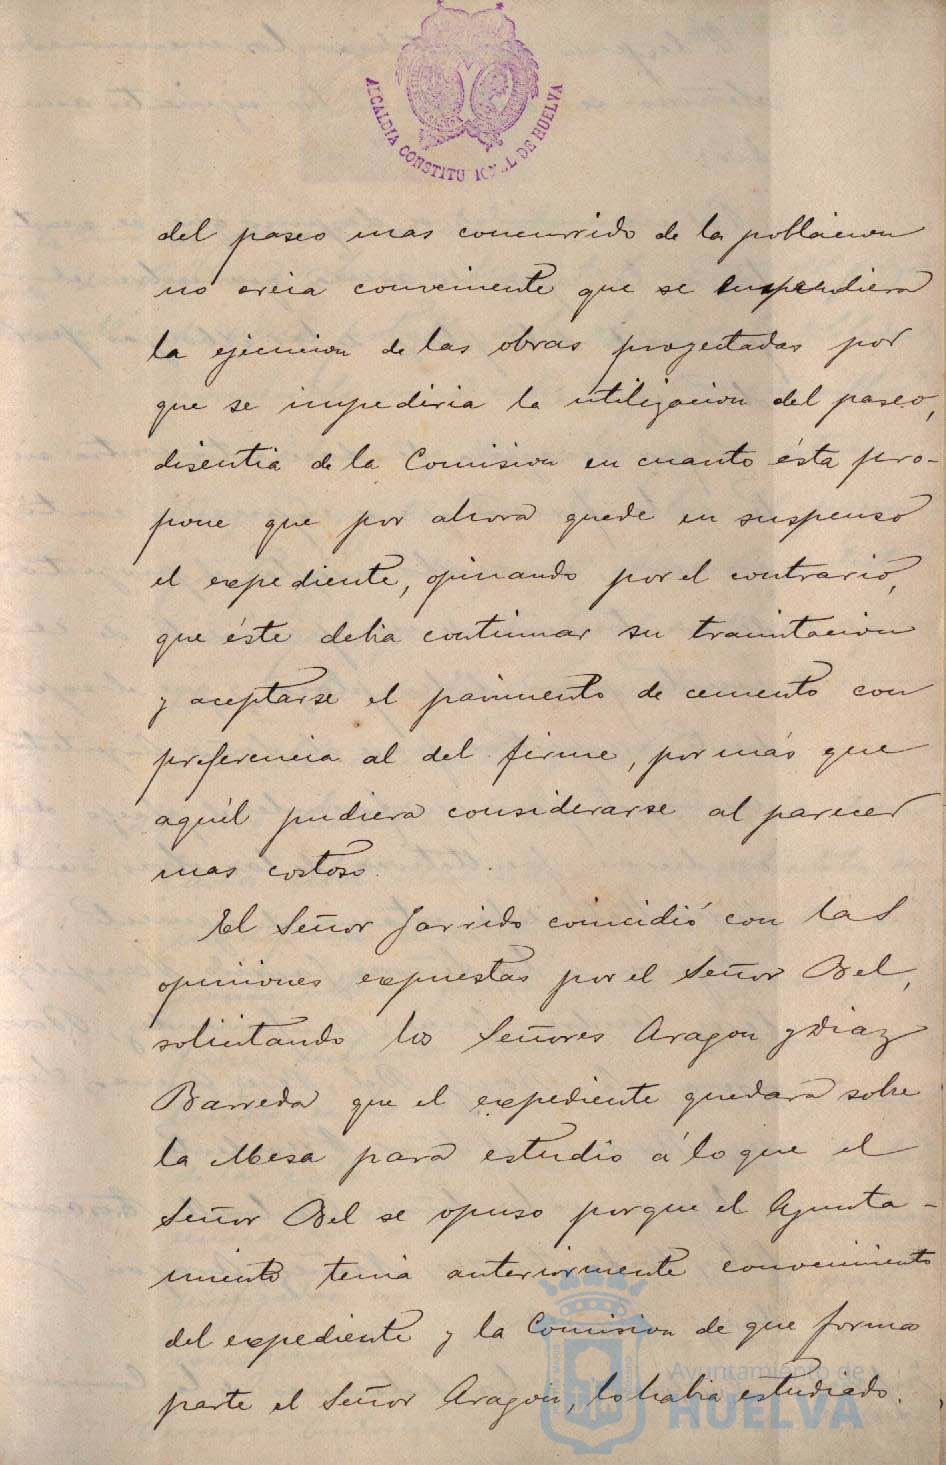 ALCALDIA CONSTITUCIONAL DE HUELVA
del paseo mas concurrido de la poblacion
no creia conveniente que se suspendiera
la ejecucion de las obras proyectadas por
que se impediria la utilizacion del paseo,
disentia de la Comision en cuanto ésta pro-
pone que por ahora quede en suspenso
el expediente, opinando por el contrario,
que éste debia continuar su tramitacion
y aceptarse el pavimento de cemento con
preferencia al del firme, por más que
aquél pudiera considerarse al parecer
mas costoso.
El Señor Garrido coincidió con las
opiniones expuestas por el Señor Bel,
solicitando los Señores Aragon y Diaz
Barreda que el expediente quedara sobre
la Mesa para estudio á lo que el
Señor Bel se opuso porque el Ayunta-
miento tenia anteriormente conocimiento
del expediente y la Comision de que forma
parte el Señor Aragon, lo habia estudiado.
Ayuntamiento de
HUELVA